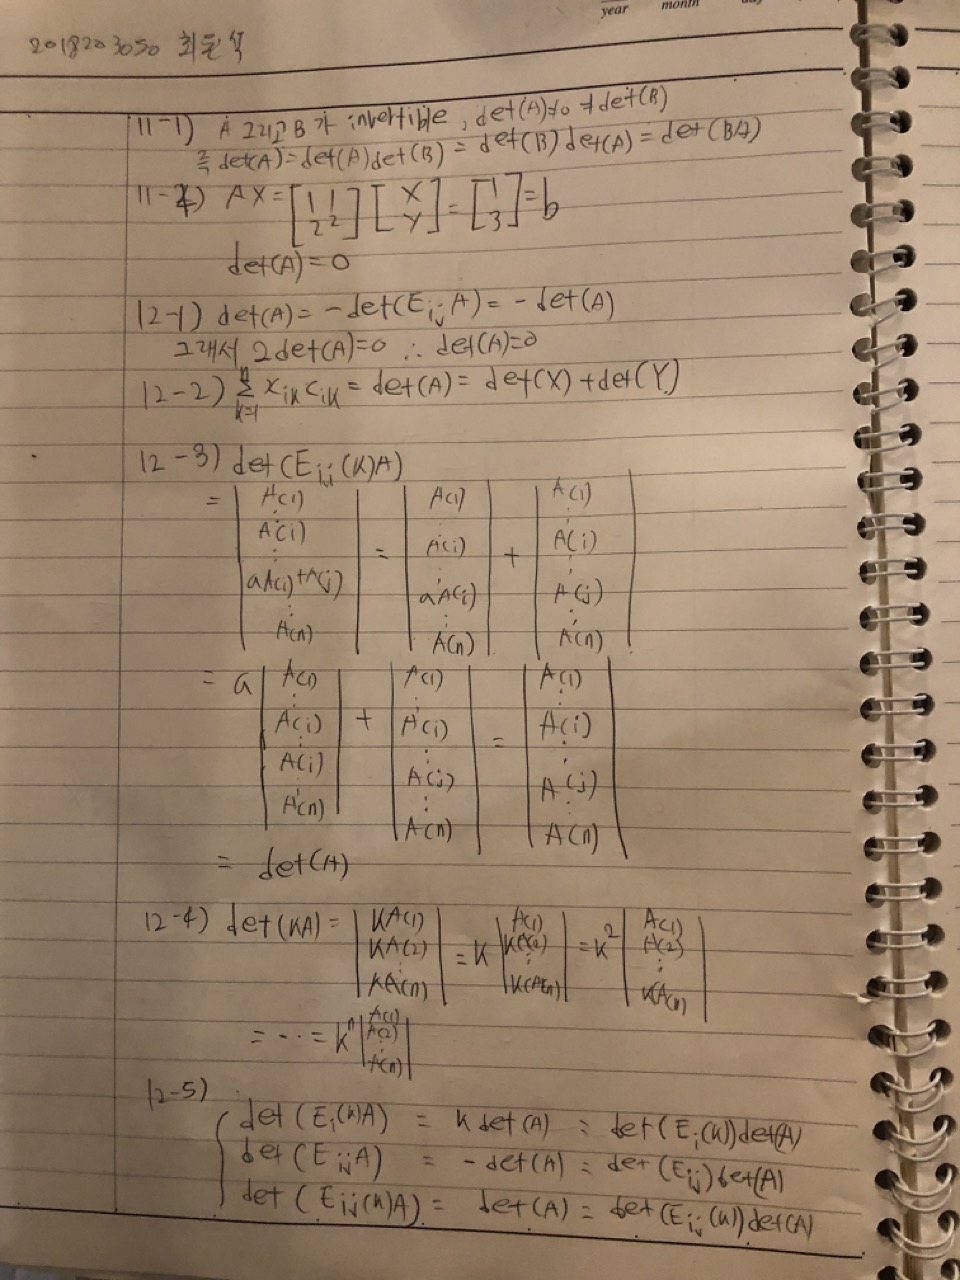 year month
2018203050 최윤석
11-1) A 그리고 B가 invertible, det(A)≠0 ≠det(B)
즉 det(A)=det(A)det(B) = det(B)det(A) = det(BA)
11-2) AX = [1 1 / 2 2] [X / Y] = [1 / 3] = b
det(A)=0
12-1) det(A) = -det(E_ij A) = -det(A)
그래서 2det(A)=0 ∴ det(A)=0
12-2) Σ_{k=1}^{n} x_ik c_ik = det(A) = det(X)+det(Y)
12-3) det(E_ij(K)A)
= | A(1) ⋮ A(i) ⋮ aA(i)+A(j) ⋮ A(n) | = | A(1) ⋮ A(i) ⋮ aA(i) ⋮ A(n) | + | A(1) ⋮ A(i) ⋮ A(j) ⋮ A(n) |
= a | A(1) ⋮ A(i) ⋮ A(i) ⋮ A(n) | + | A(1) ⋮ A(i) ⋮ A(j) ⋮ A(n) | = | A(1) ⋮ A(i) ⋮ A(j) ⋮ A(n) |
= det(A)
12-4) det(KA) = | KA(1) KA(2) ⋮ KA(n) | = K | A(1) KA(2) ⋮ KA(n) | = K² | A(1) A(2) ⋮ KA(n) |
= ··· = Kⁿ | A(1) A(2) ⋮ A(n) |
12-5)
det(E_i(K)A) = K det(A) = det(E_i(K))det(A)
det(E_ij A) = -det(A) = det(E_ij)det(A)
det(E_ij(K)A) = det(A) = det(E_ij(K))det(A)